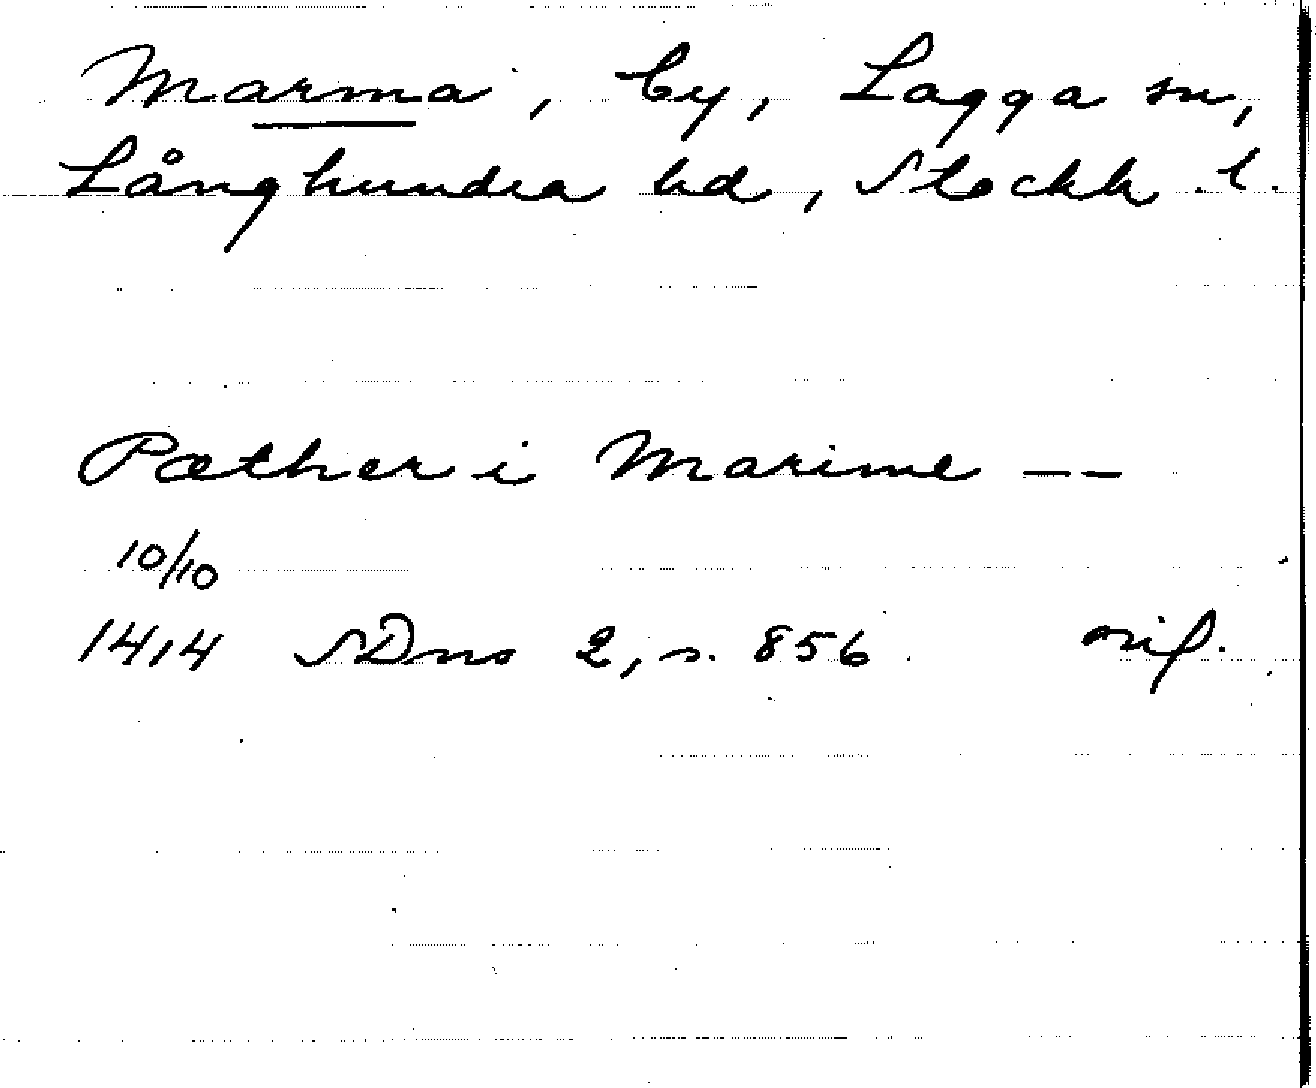 Marma, by, Lagga sn,
Långhundra hd, Stockh. l.
Pæther i Marime --
10/10
1414 SDns 2, s. 856